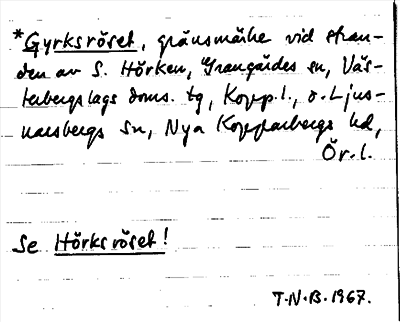 *Gyrksröset, gränsmärke vid stran-
den av S. Hörken, Grangärdes sn, Väs-
terbergslags doms. tg, Kopp. l., o. Ljus-
narsbergs sn, Nya Kopparbergs hd,
Ör. l.
Se Hörksröset!
T.N.B. 1967.